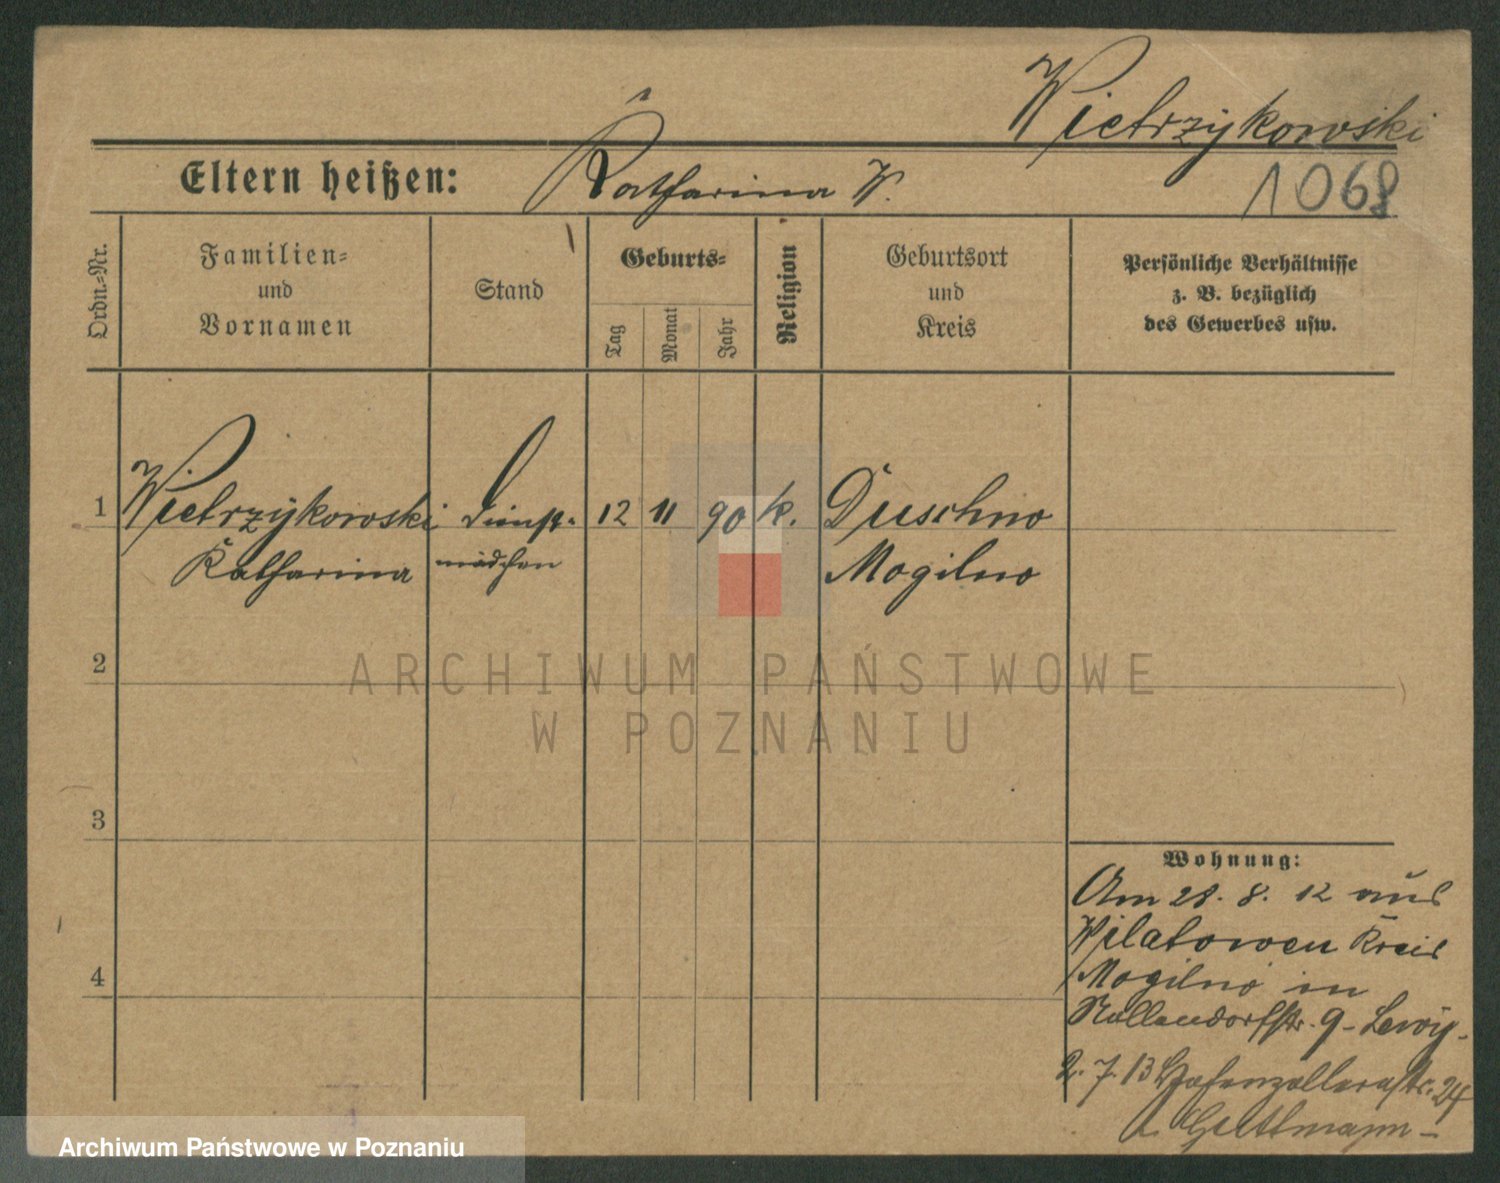 Wietrzykowski
Eltern heißen: Katharina W.
1068
Ordn.-Nr.
Familien-
und
Vornamen
Stand
Geburts-
Tag
Monat
Jahr
Religion
Geburtsort
und
Kreis
Persönliche Verhältnisse
z. B. bezüglich
des Gewerbes usw.
1 Wietrzykowski Dienst- 12 11 90 k. Duschno
Katharina mädchen Mogilno
2
3
4
ARCHIWUM PAŃSTWOWE
W POZNANIU
Wohnung:
Am 28. 8. 12 aus
Wilatowen Kreis
Mogilno in
Nollendorfstr. 9 - Lewy.
2. 7. 13 Hohenzollernstr. 24
Guttmann -
Archiwum Państwowe w Poznaniu